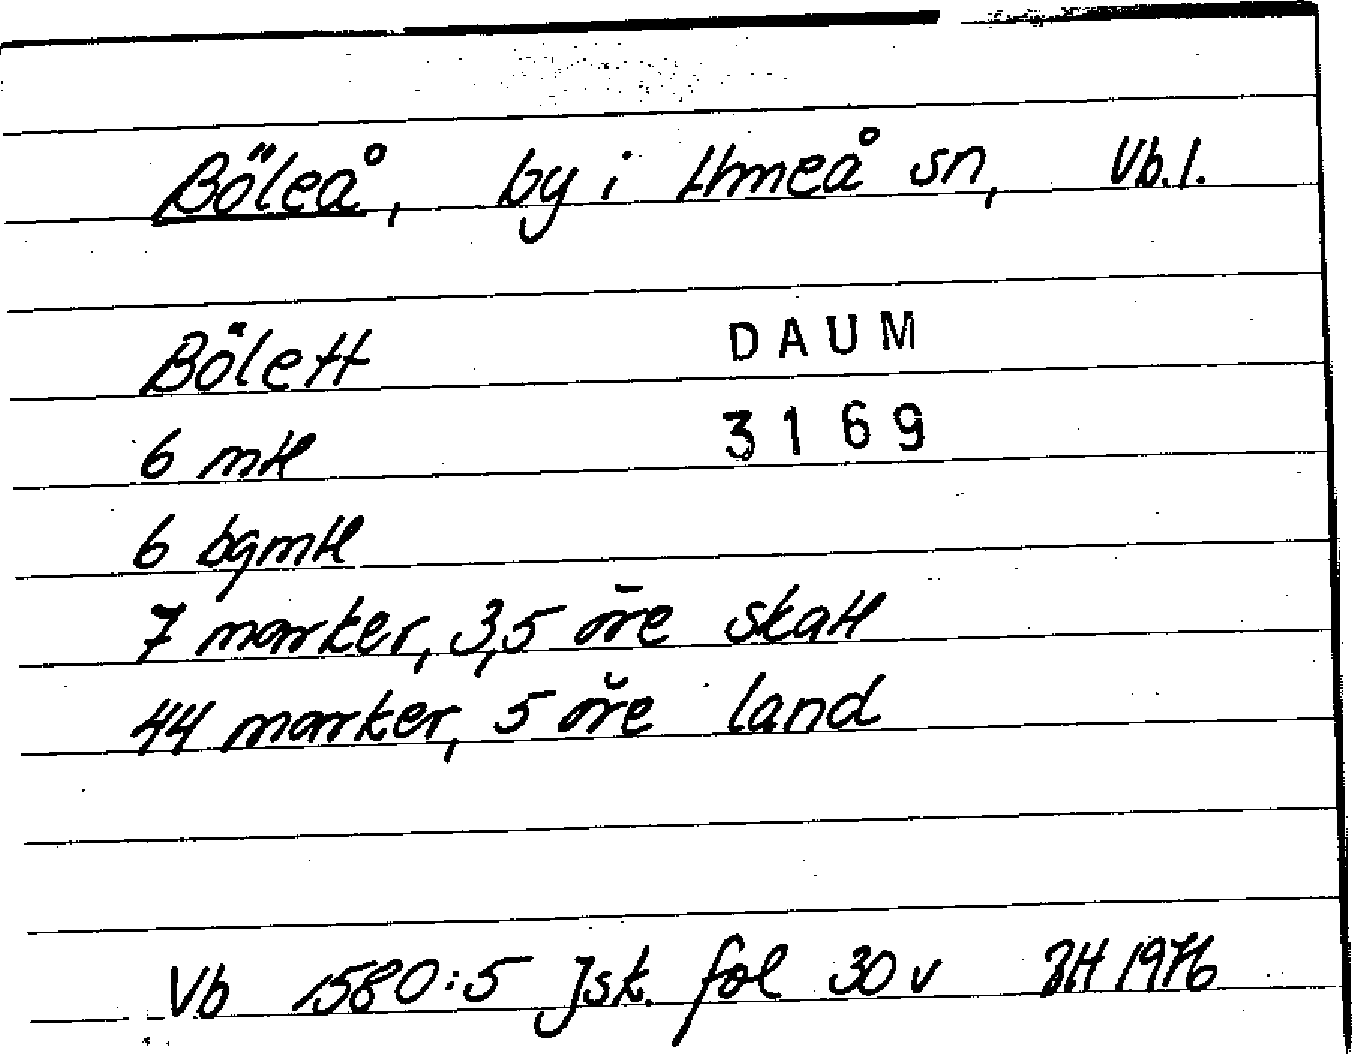 Böleå, by i Umeå sn, Vb.l.
Bölett DAUM
6 mtl 3169
6 bgmtl
7 marker, 3,5 öre skatt
44 marker, 5 öre land
Vb 1580:5 Jsk. fol 30 v 1976